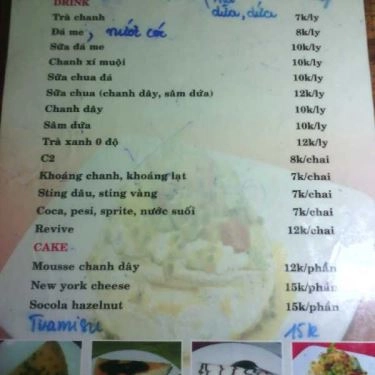 DRINK
dừa, dứa
Trà chanh 7k/ly
Đá me, nước cóc 8k/ly
Sữa đá me 10k/ly
Chanh xí muội 10k/ly
Sữa chua đá 10k/ly
Sữa chua (chanh dây, sâm dứa) 12k/ly
Chanh dây 10k/ly
Sâm dứa 10k/ly
Trà xanh 0 độ 12k/ly
C2 8k/chai
Khoáng chanh, khoáng lạt 7k/chai
Sting dâu, sting vàng 7k/chai
Coca, pesi, sprite, nước suối 7k/chai
Revive 12k/chai
CAKE
Mousse chanh dây 12k/phần
New york cheese 15k/phần
Socola hazelnut 15k/phần
Tiramisu 15k